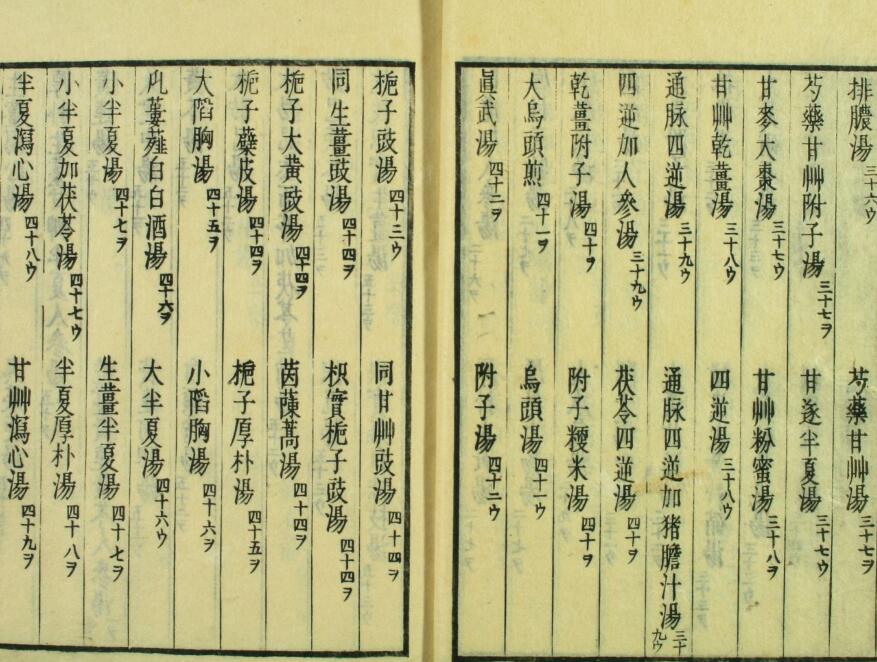 排膿湯 三十六ウ 芍藥甘艸湯 三十七ヲ
芍藥甘艸附子湯 三十七ヲ 甘遂半夏湯 三十七ウ
甘麥大棗湯 三十七ウ 甘艸粉蜜湯 三十八ヲ
甘艸乾薑湯 三十八ウ 四逆湯 三十八ウ
通脉四逆湯 三十九ウ 通脉四逆加猪膽汁湯 三十九ウ
四逆加人參湯 三十九ウ 茯苓四逆湯 四十ヲ
乾薑附子湯 四十ヲ 附子粳米湯 四十ヲ
大烏頭煎 四十一ヲ 烏頭湯 四十一ウ
眞武湯 四十二ヲ 附子湯 四十二ウ
梔子豉湯 四十三ウ 同甘艸豉湯 四十四ヲ
同生薑豉湯 四十四ヲ 枳實梔子豉湯 四十四ヲ
梔子大黄豉湯 四十四ヲ 茵蔯蒿湯 四十四ヲ
梔子蘗皮湯 四十四ヲ 梔子厚朴湯 四十五ヲ
大陷胸湯 四十五ヲ 小陷胸湯 四十六ヲ
瓜蔞薤白白酒湯 四十六ヲ 大半夏湯 四十六ウ
小半夏湯 四十七ヲ 生薑半夏湯 四十七ヲ
小半夏加茯苓湯 四十七ウ 半夏厚朴湯 四十八ヲ
半夏瀉心湯 四十八ウ 甘艸瀉心湯 四十九ヲ